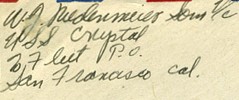 W. J. Niedermeier Som 1/c
U.S.S. Crystal
% Fleet P.O.
San Francisco Cal.